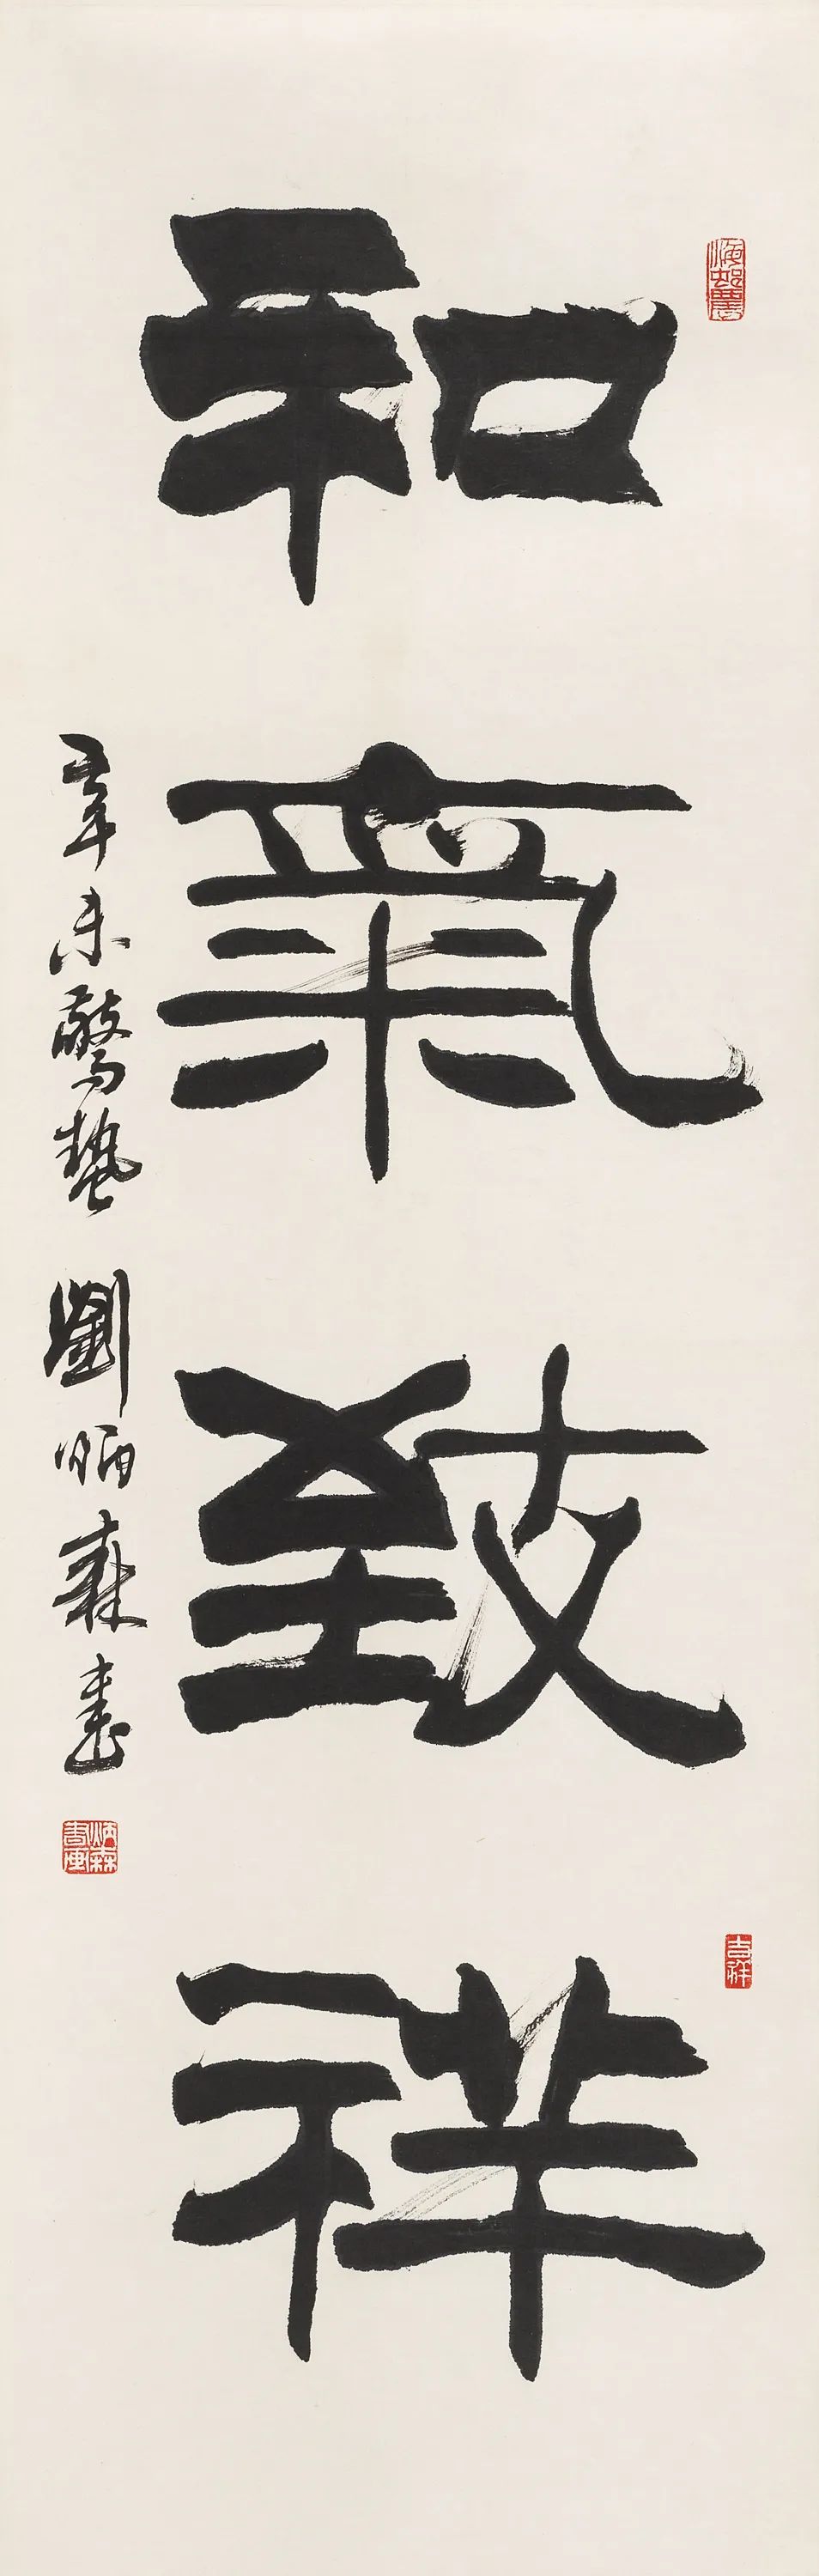 和氣致祥
辛未驚蟄 劉炳森書
炳森書畫
吉祥